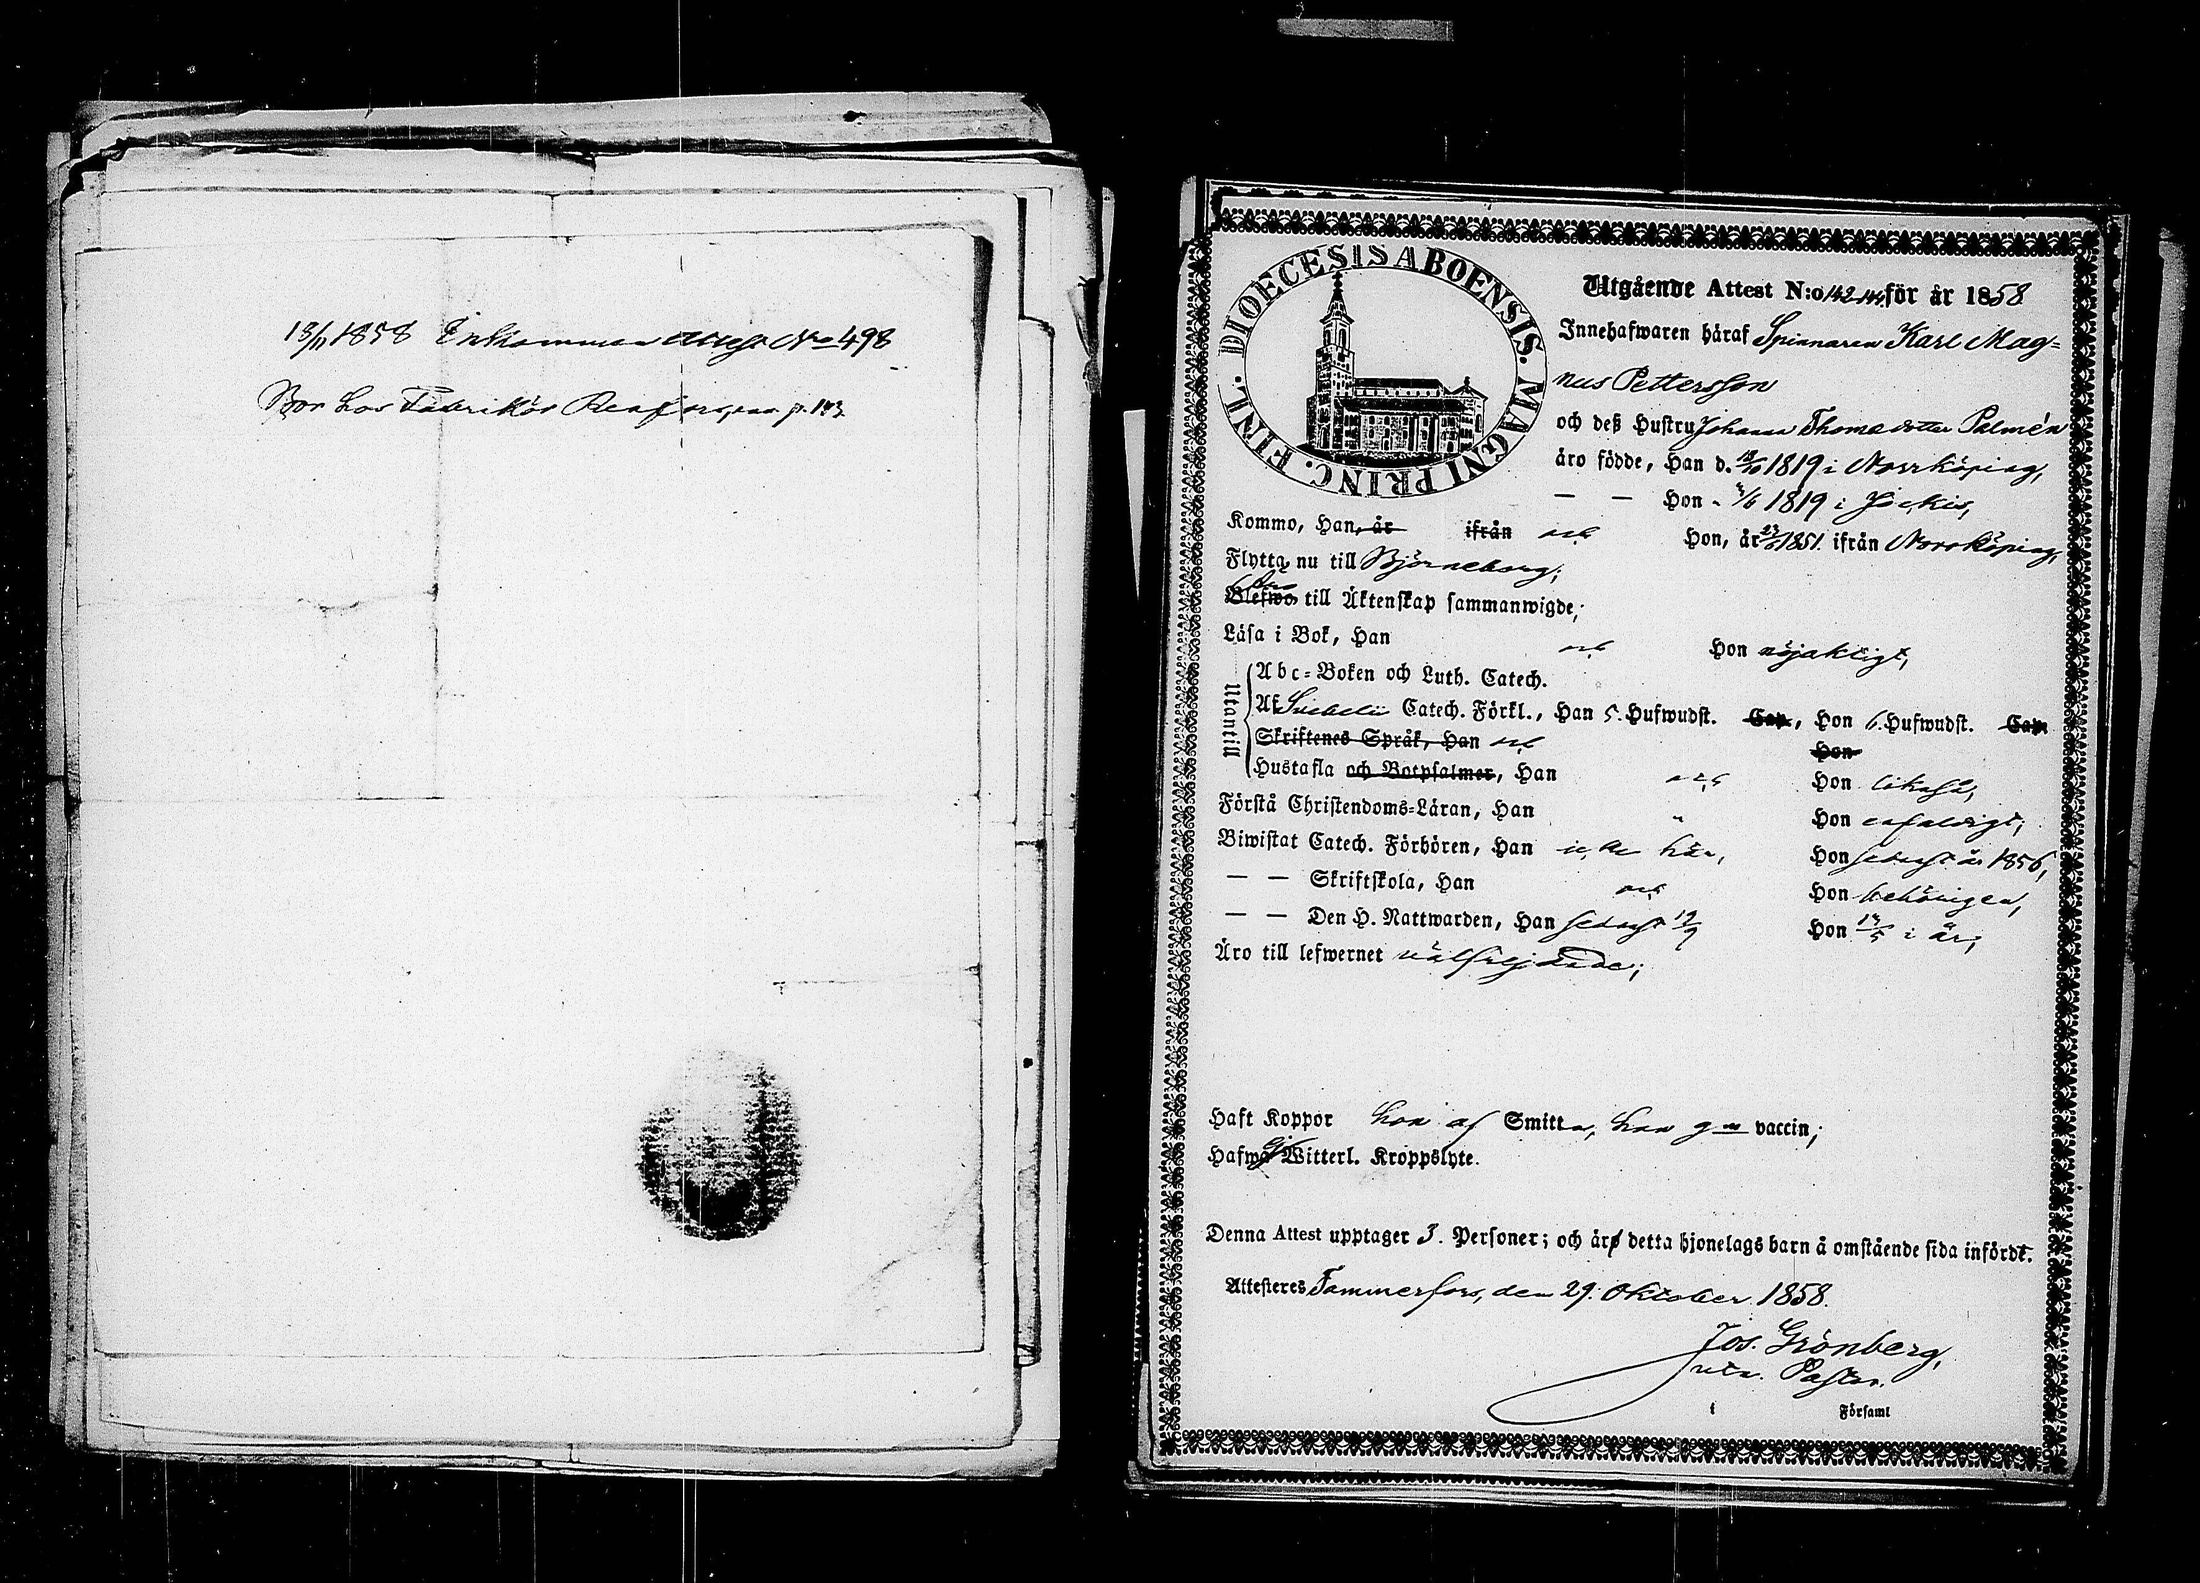 13/11 1858 Inkommen attest No 498
Bor hos Fabrikör
DIOECESIS ABOENSIS. MAGNI PRINC. FINL.
Utgående Attest N:o 142-144 för år 1858
Innehafwaren häraf Spinnaren Karl Mag-
nus Pettersson
och deß Hustru Johanna Thomasdotter Palmén
äro födde, Han d. 1819 i Norrköping,
— — Hon 1819 i Jockis,
Kommo, Han, år ifrån och Hon, år 1851 ifrån Norrköping,
Flytta nu till Björneborg;
Blefwo till Äktenskap sammanwigde;
Läsa i Bok, Han och Hon nöjaktigt,
Utantill
Abc-Boken och Luth. Catech.
Af Svebelii Catech. Förkl., Han 5. Hufwudst. Cap., Hon 6. Hufwudst. Cap.
Skriftenes Språk, Han och Hon
Hustafla och Botpsalmer, Han och Hon likaså,
Förstå Christendoms-Läran, Han " Hon enfaldigt;
Biwistat Catech. Förhören, Han icke här, Hon sednast år 1856,
— — Skriftskola, Han och Hon behörigen,
— — Den H. Nattwarden, Han sednast 19/9 Hon i år;
Äro till lefwernet välfrejdade;
Haft Koppor hon af Smitta, han gm vaccin;
Hafwa ej Witterl. Kroppslyte.
Denna Attest upptager 3. Personer; och äro detta hjonelags barn å omstående sida införde.
Attesteres Tammerfors, den 29. Oktober 1858.
Jos. Grönberg,
Pastor.
i Församl